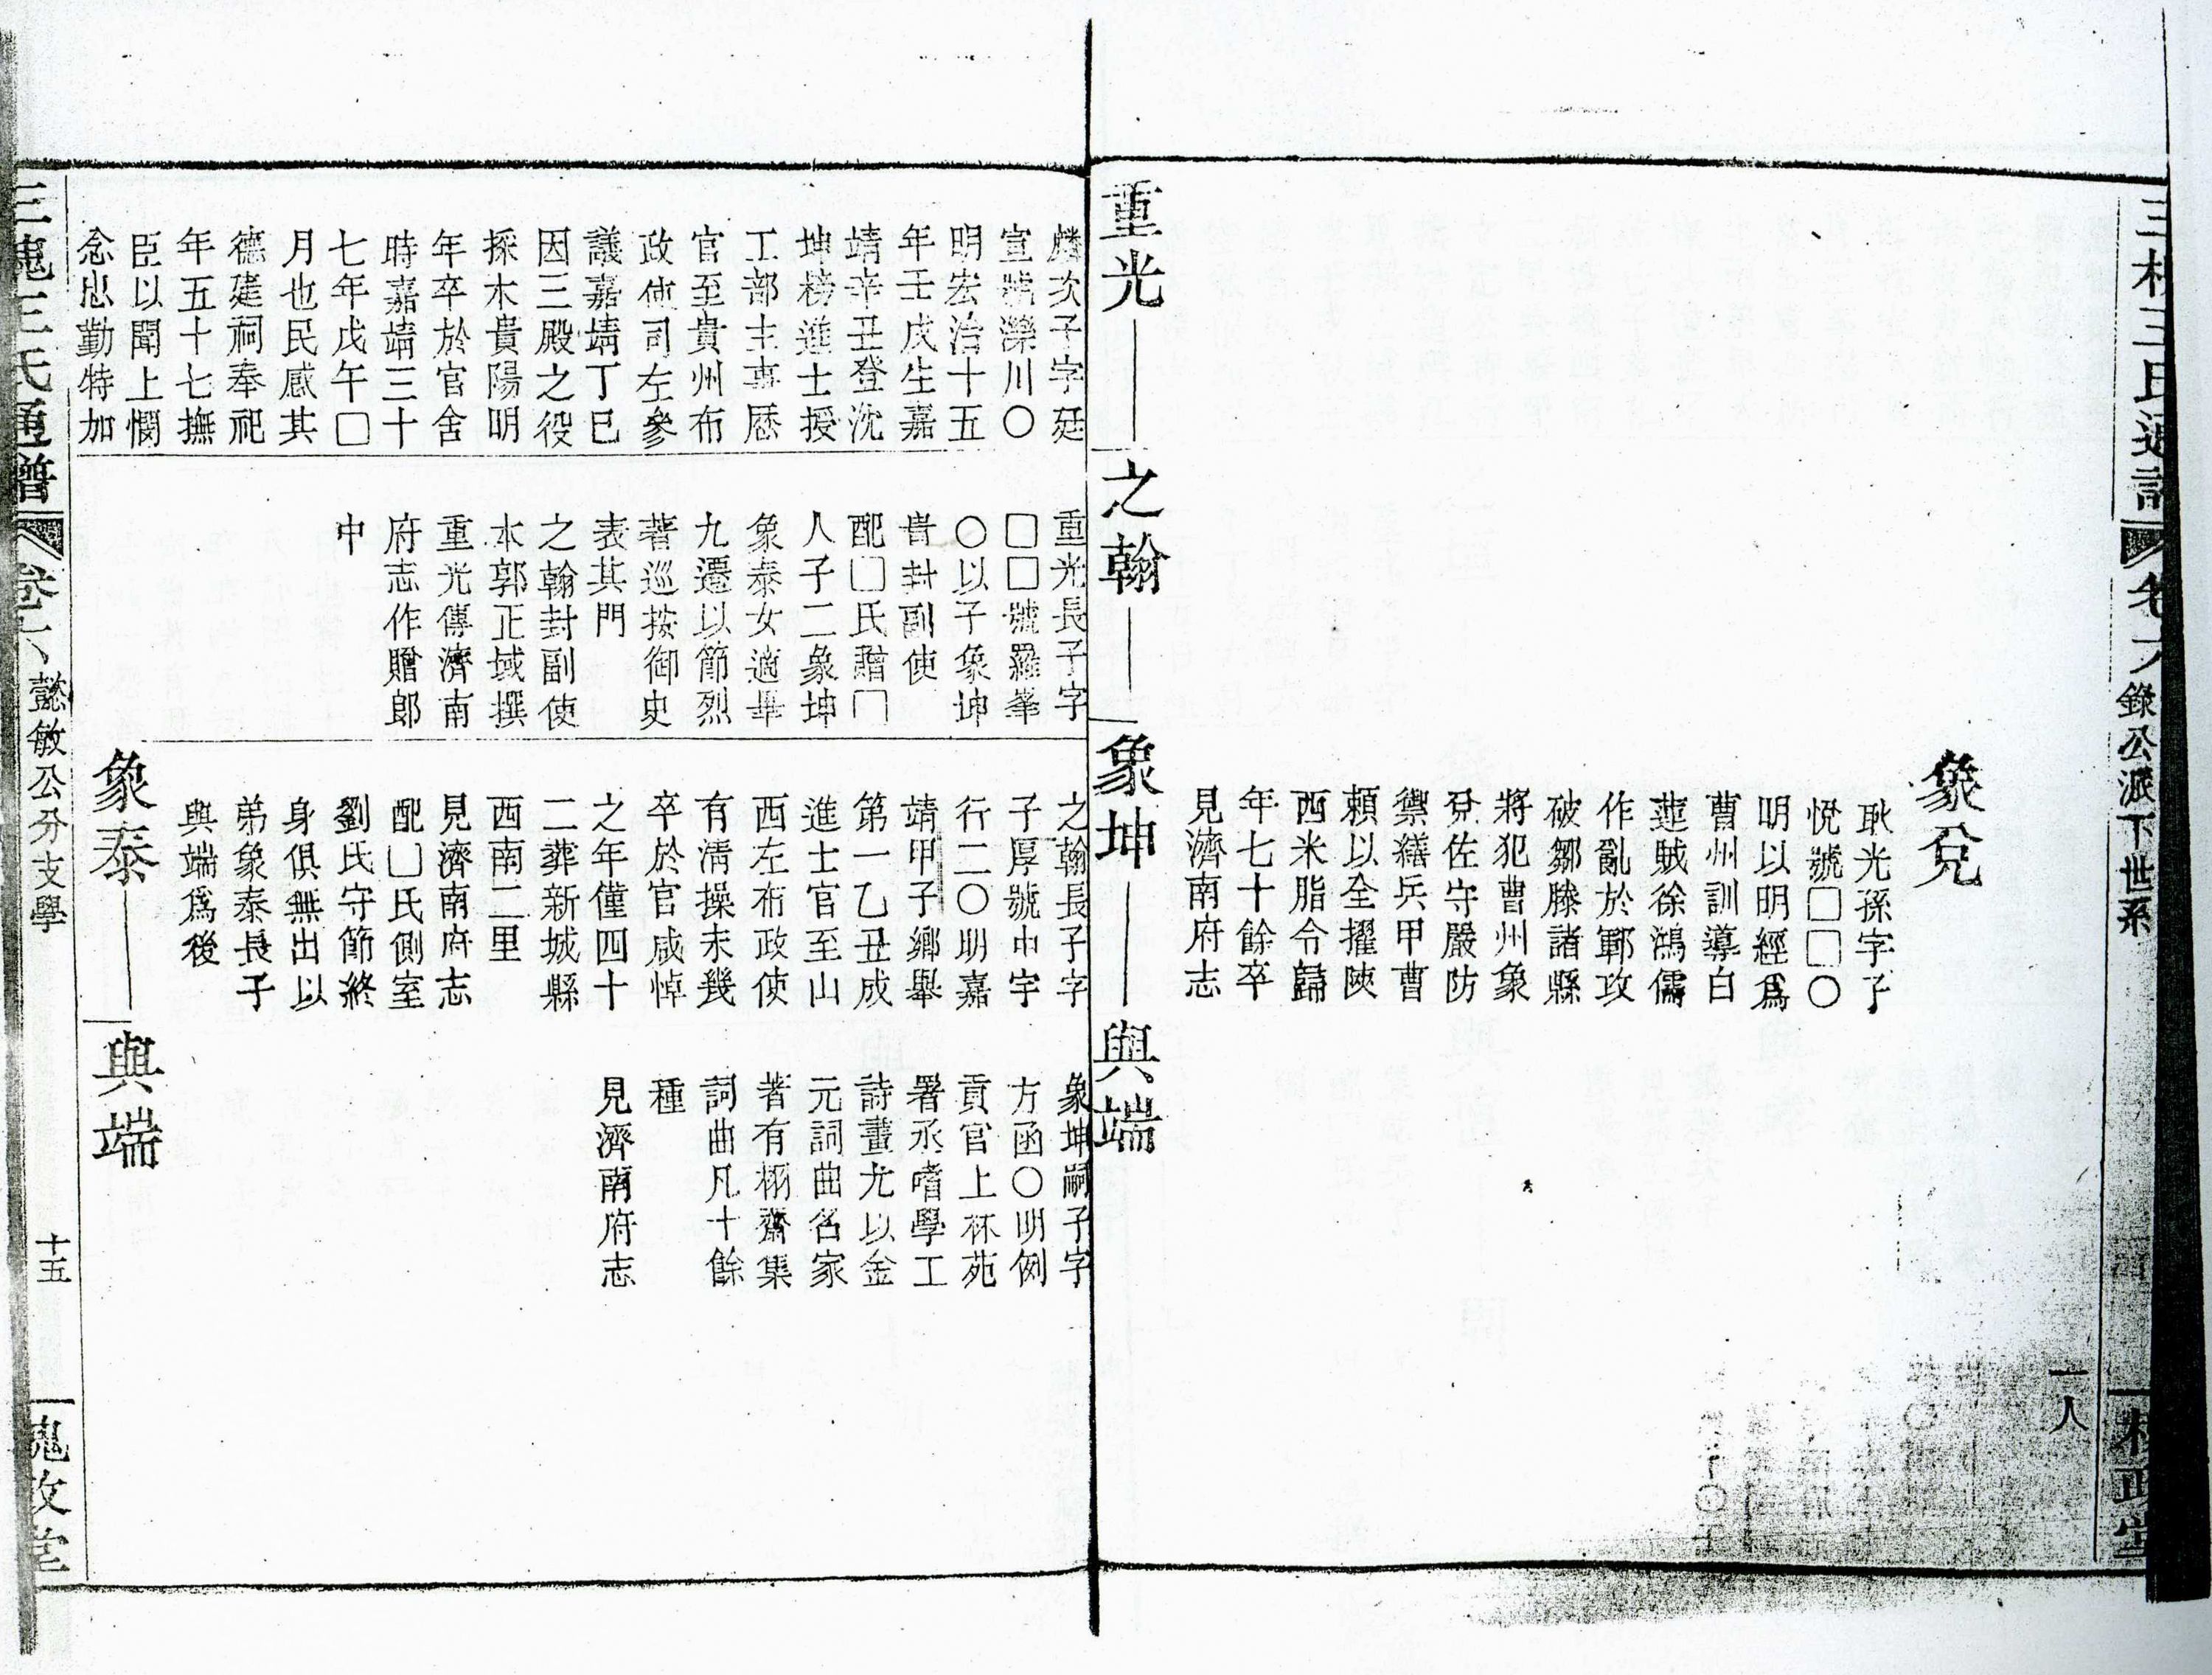 三槐王氏通譜
卷
錄公派下世系
槐政堂
一人
象兌
耿光孫字子
悅號□□○
明以明經爲
曹州訓導白
蓮賊徐鴻儒
作亂於鄆攻
破鄒滕諸縣
將犯曹州象
兌佐守嚴防
禦繕兵甲曹
賴以全擢陝
西米脂令歸
年七十餘卒
見濟南府志
重光 之翰 象坤 與端
麟次子字廷
宣號濼川○
明宏治十五
年壬戌生嘉
靖辛丑登沈
坤榜進士授
工部主事歷
官至貴州布
政使司左參
議嘉靖丁巳
因三殿之役
採木貴陽明
年卒於官舍
時嘉靖三十
七年戊午□
月也民感其
德建祠奉祀
年五十七撫
臣以聞上憫
念忠勤特加
重光長子字
□□號羅峯
○以子象坤
貴封副使
配□氏贈□
人子二象坤
象泰女適畢
九遷以節烈
著巡按御史
表其門
之翰封副使
本郭正域撰
重光傳濟南
府志作贈郎
中
之翰長子字
子厚號中宇
行二○明嘉
靖甲子鄉舉
第一乙丑成
進士官至山
西左布政使
有清操未幾
卒於官咸悼
之年僅四十
二葬新城縣
西南二里
見濟南府志
配□氏側室
劉氏守節終
身俱無出以
弟象泰長子
與端爲後
象坤嗣子字
方函○明例
貢官上林苑
署丞嗜學工
詩畫尤以金
元詞曲名家
著有栩齋集
詞曲凡十餘
種
見濟南府志
象泰 與端
三槐王氏通譜
卷六
懿敏公分支學
十五
槐政堂